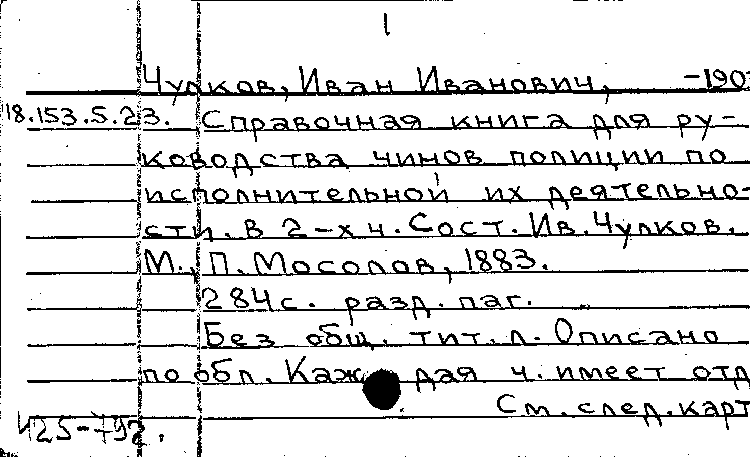 1
Чулков, Иван Иванович, -190
18.153.5.23. Справочная книга для ру-
ководства чинов полиции по
исполнительной их деятельно-
сти. В 2-х ч. Сост. Ив. Чулков.
М., П. Мосолов, 1883.
284 с. разд. паг.
Без общ. тит. л. Описано
по обл. Каждая ч. имеет отд
См. след. карт
Ч25-792.